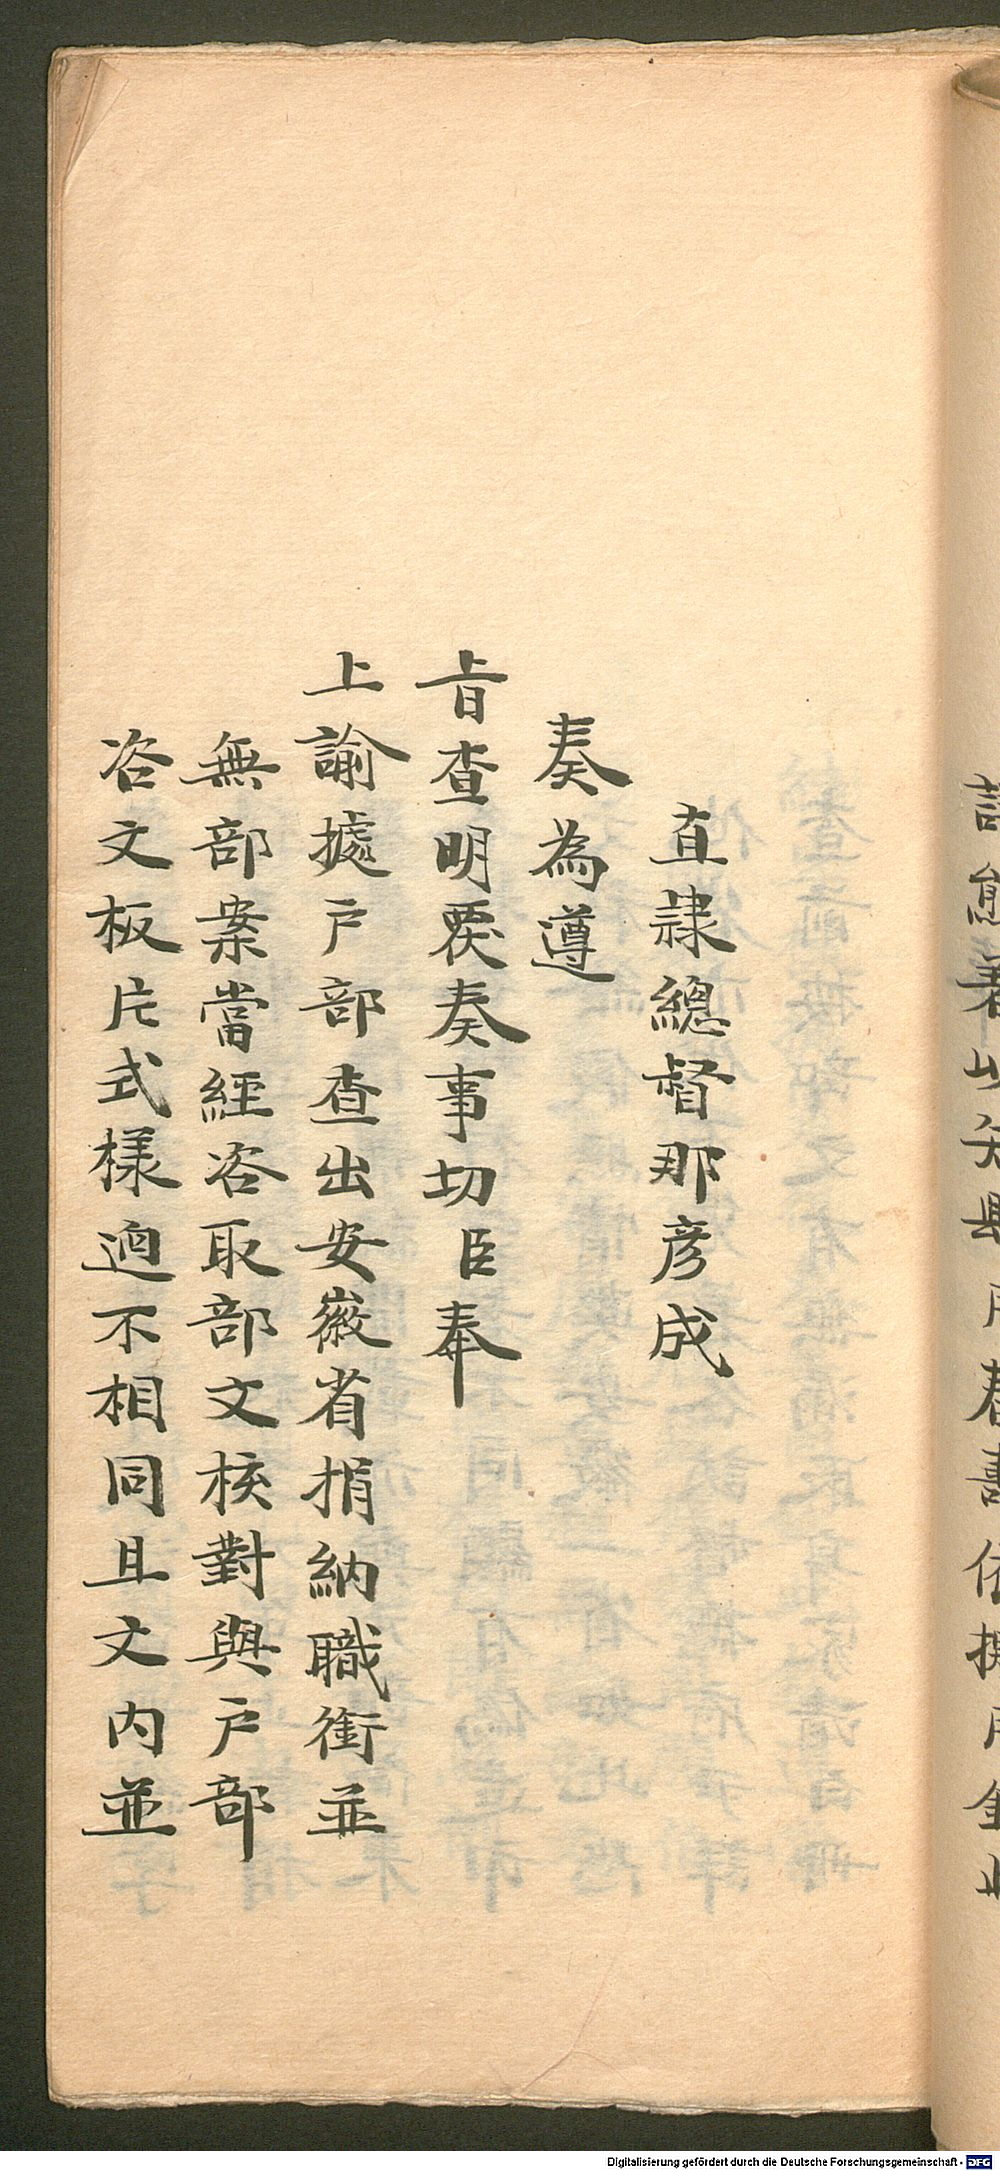 直隷總督那彥成
奏為遵
旨查明覆奏事切臣奉
上諭據戶部查出安徽省捐納職銜並
無部案當經咨取部文核對與戶部
咨文板片式樣迥不相同且文內並
Digitalisierung gefördert durch die Deutsche Forschungsgemeinschaft - DFG